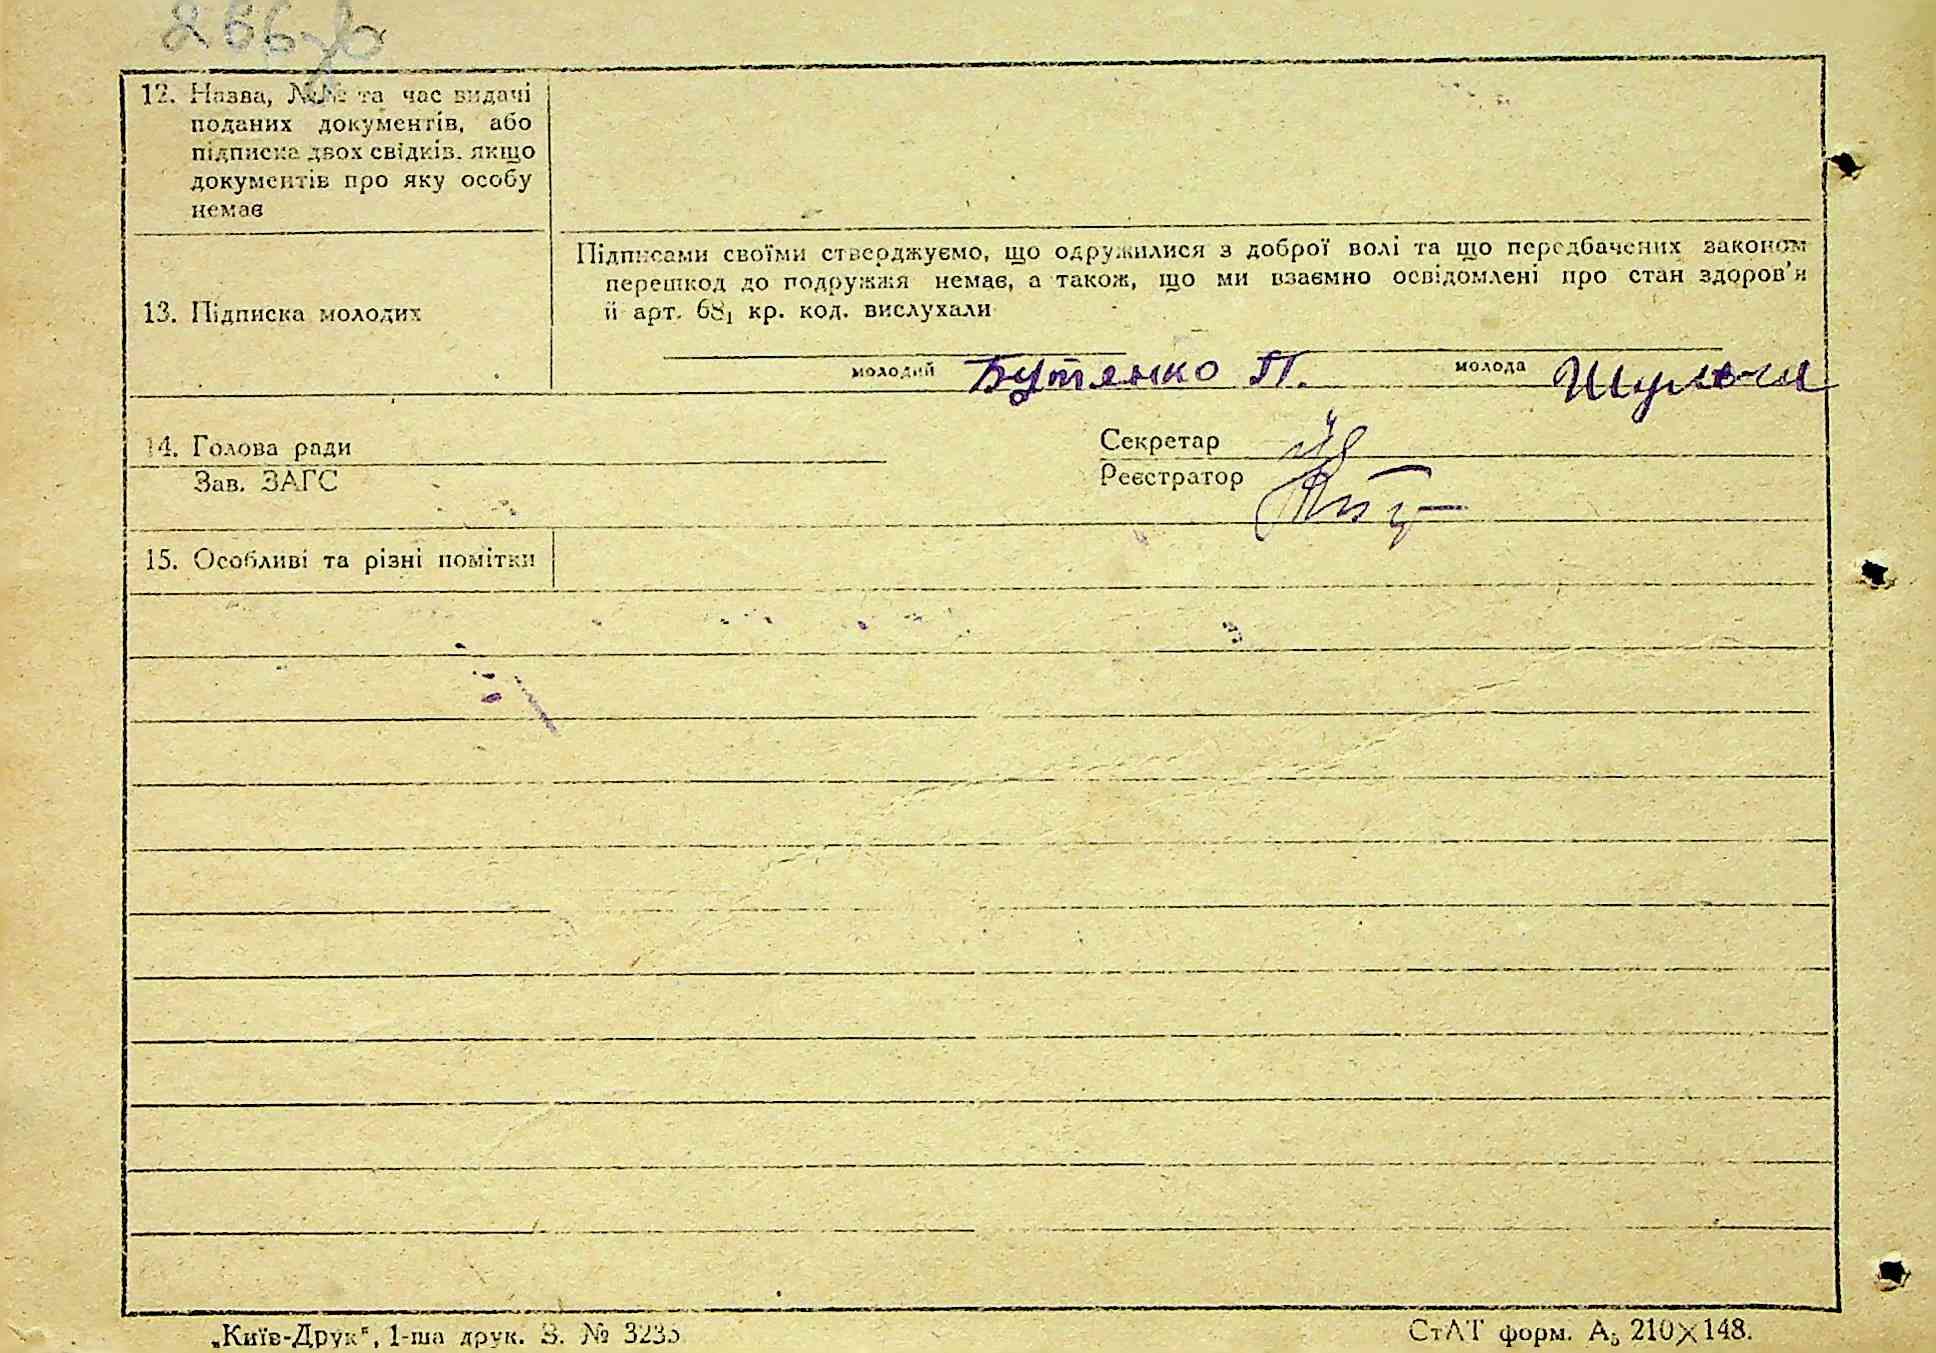 266 зв
12. Назва, №№ та час видачі
поданих документів, або
підписка двох свідків, якщо
документів про яку особу
немає
13. Підписка молодих
Підписами своїми стверджуємо, що одружилися з доброї волі та що передбачених законом
перешкод до подружжя немає, а також, що ми взаємно освідомлені про стан здоров'я
й арт. 68₁ кр. код. вислухали
молодий Бутянко П. молода Шульги
14. Голова ради Секретар
Зав. ЗАГС Реєстратор
15. Особливі та різні помітки
„Київ-Друк", 1-ша друк. З. № 3235
СтАТ форм. А₅ 210×148.